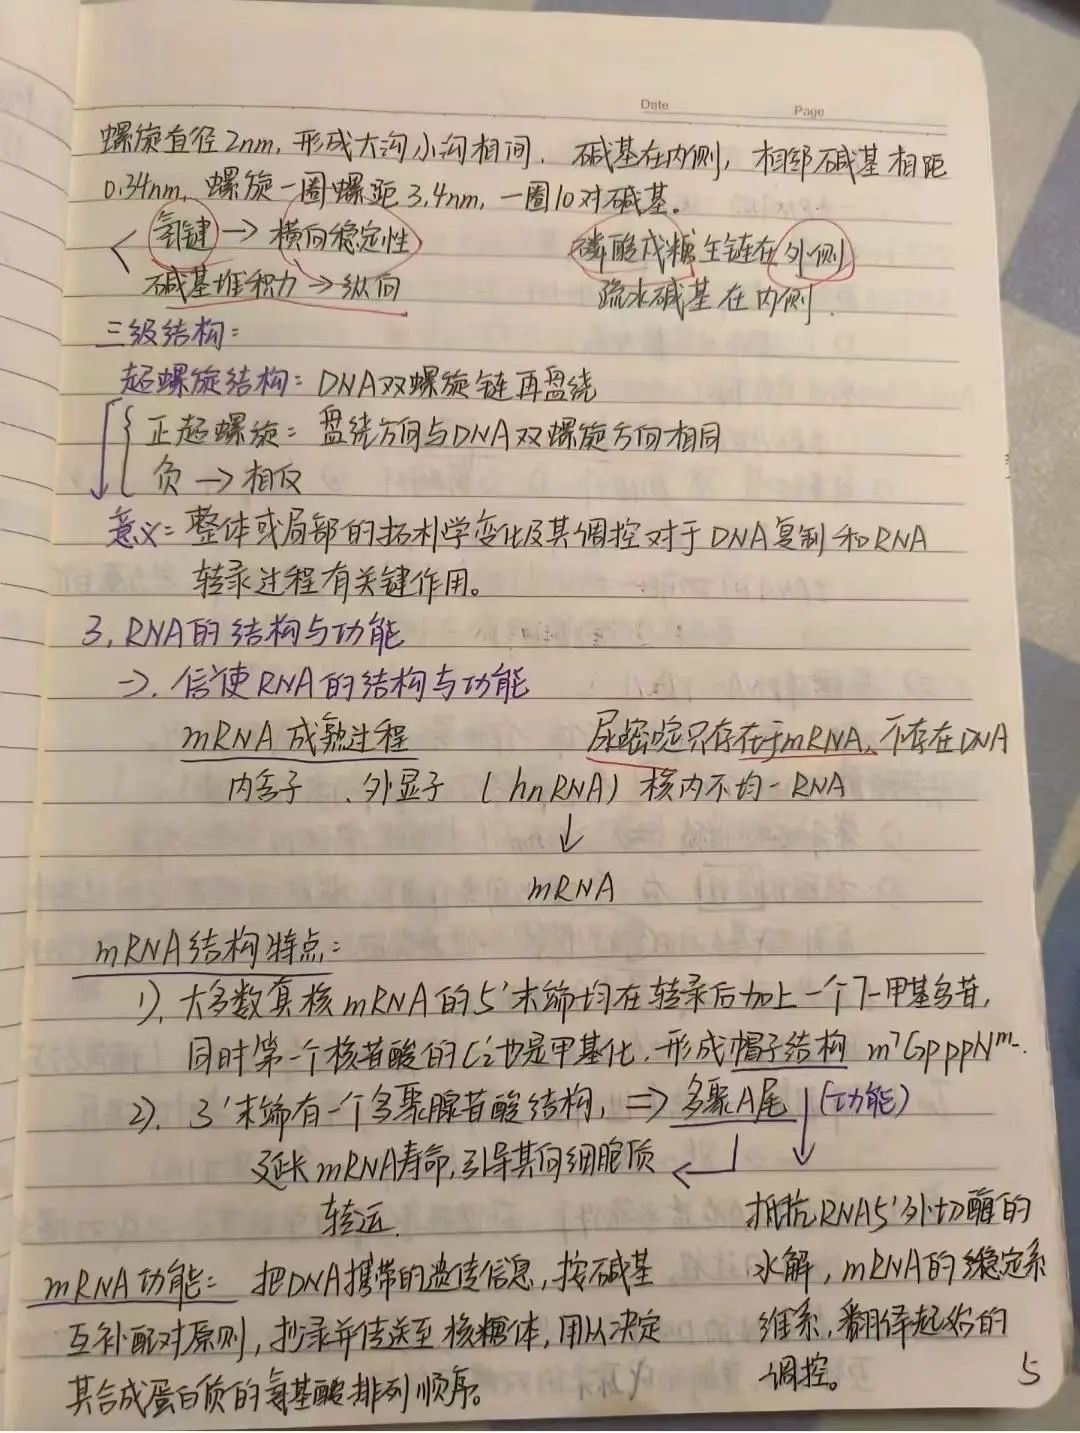 Date Page
螺旋直径2nm,形成大沟小沟相间. 碱基在内侧,相邻碱基相距
0.34nm,螺旋一圈螺距3.4nm,一圈10对碱基。
氢键→横向稳定性 磷酸戊糖主链在外侧
碱基堆积力→纵向 疏水碱基在内侧.
三级结构:
超螺旋结构:DNA双螺旋链再盘绕
正超螺旋:盘绕方向与DNA双螺旋方向相同
负→相反
意义:整体或局部的拓扑学变化及其调控对于DNA复制和RNA
转录过程有关键作用。
3.RNA的结构与功能
一>.信使RNA的结构与功能
mRNA成熟过程 尿嘧啶只存在于mRNA,不存在DNA
内含子、外显子(hnRNA)核内不均一RNA
↓
mRNA
mRNA结构特点:
1).大多数真核mRNA的5'末端均在转录后加上一个7-甲基鸟苷,
同时第一个核苷酸的C2'也是甲基化.形成帽子结构 m⁷GpppNᵐ-.
2).3'末端有一个多聚腺苷酸结构,⇒多聚A尾 ↓(功能)
延长mRNA寿命,引导其向细胞质
转运.
抵抗RNA5'外切酶的
水解,mRNA的稳定系
维系,翻译起始的
调控。
mRNA功能:把DNA携带的遗传信息,按碱基
互补配对原则,抄录并传送至核糖体,用以决定
其合成蛋白质的氨基酸排列顺序。
5